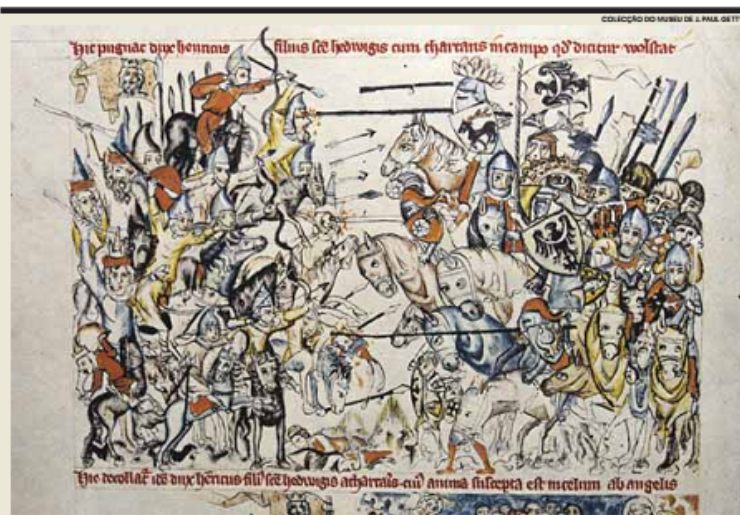 COLECÇÃO DO MUSEU DE J. PAUL GETT
Hic pugnat dux henricus filius sce hedwigis cum thartaris in campo qd dicitur wolstat
Hic decollat ite dux henricus fili sce hedwigis a thartaris cui anima suscepta est in celum ab angelis